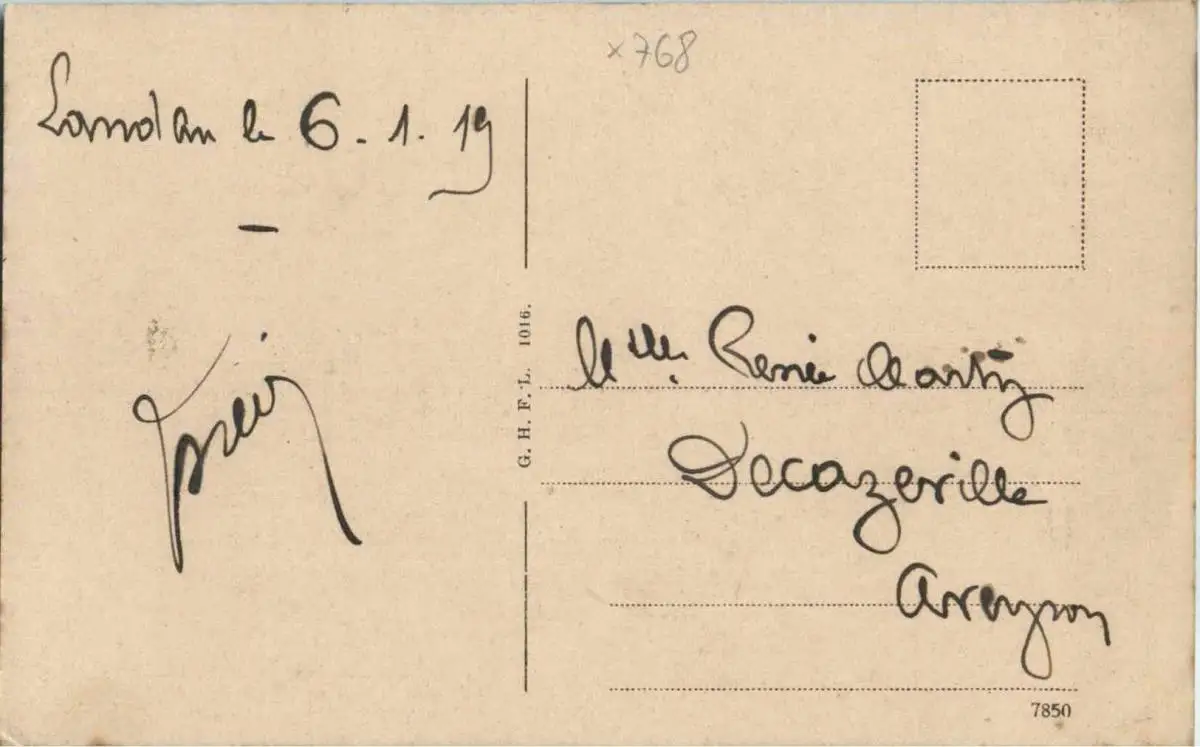 x768
Landau le 6.1.19
G. H. F. L. 1016.
Mlle. Renée Marty
Decazeville
Aveyron
7850